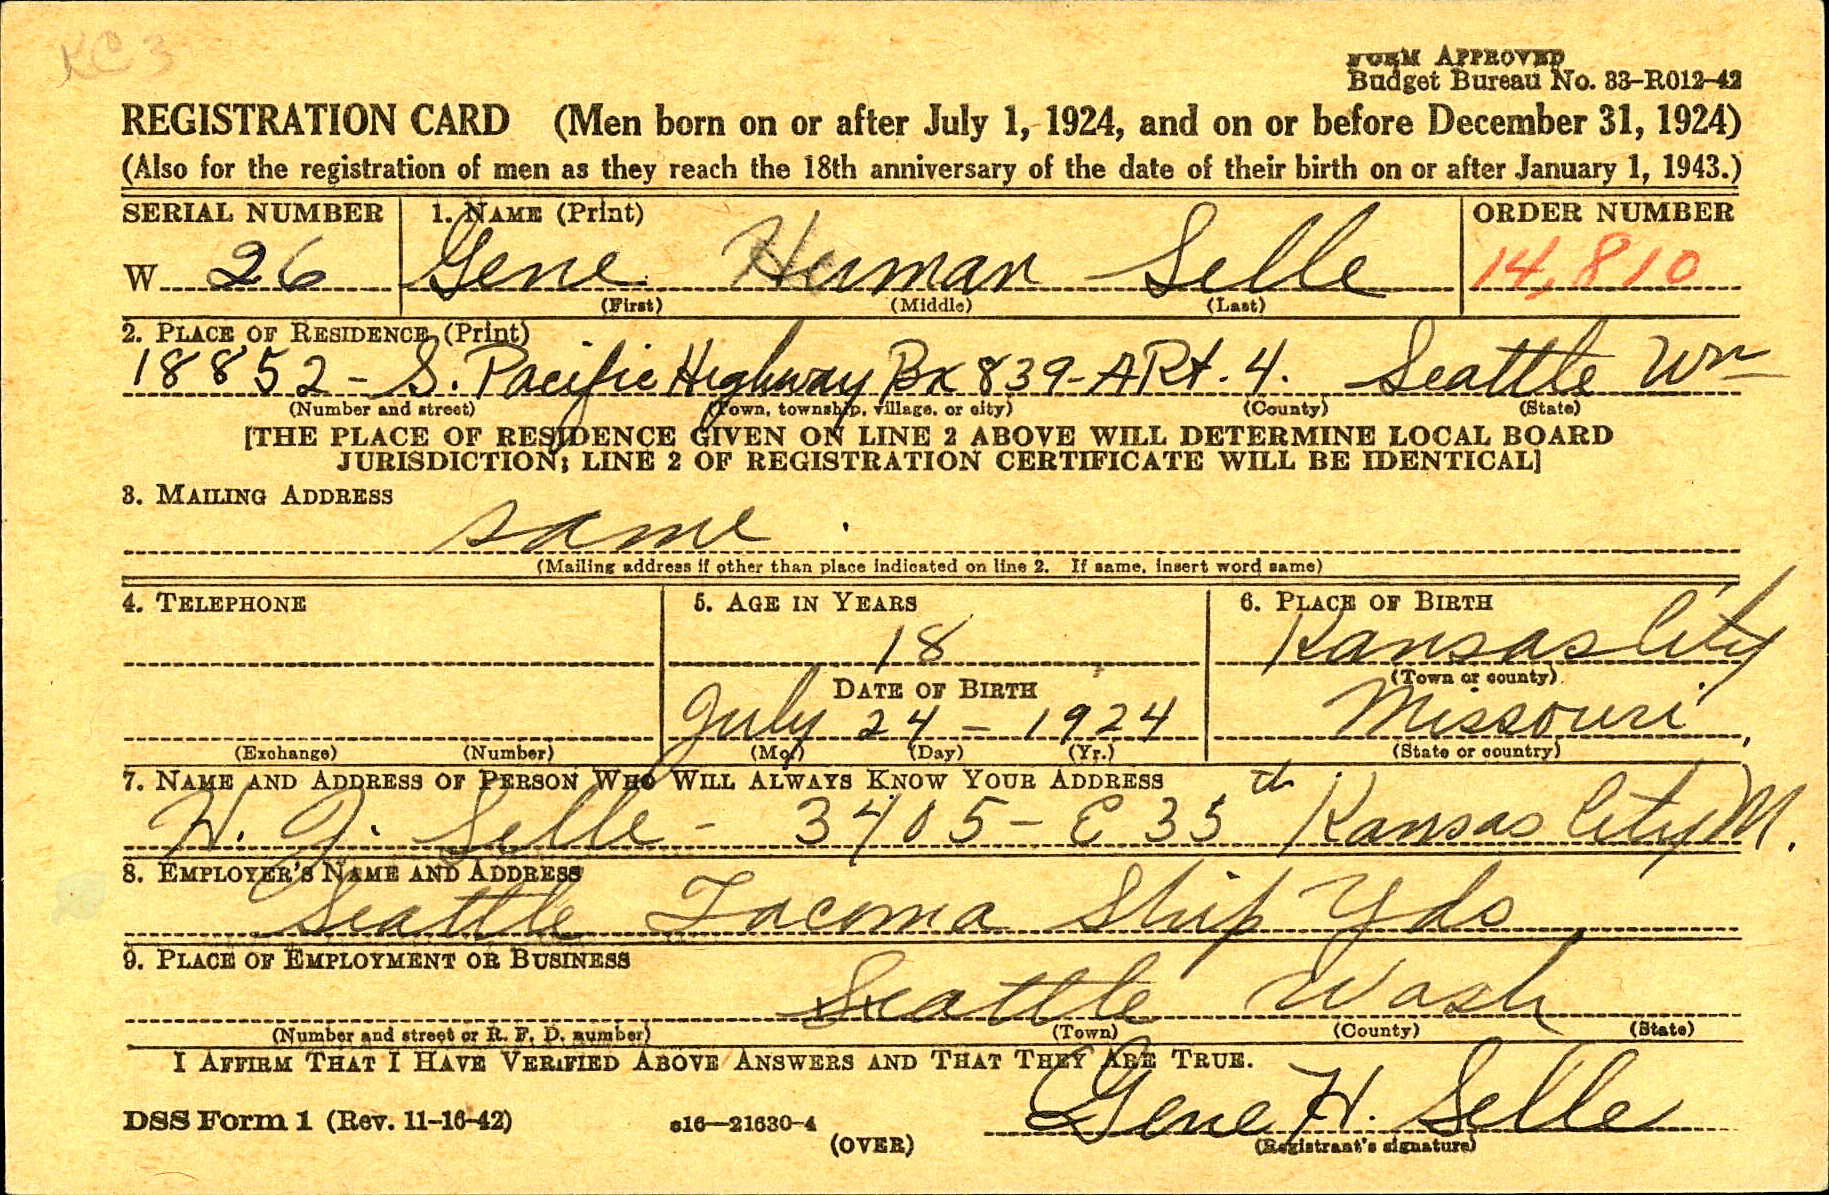 KC 3
FORM APPROVED
Budget Bureau No. 33-R012-42
REGISTRATION CARD (Men born on or after July 1, 1924, and on or before December 31, 1924)
(Also for the registration of men as they reach the 18th anniversary of the date of their birth on or after January 1, 1943.)
SERIAL NUMBER 1. NAME (Print) ORDER NUMBER
W 26 Gene Herman Selle 14,810
(First) (Middle) (Last)
2. PLACE OF RESIDENCE (Print)
18852 - S. Pacific Highway Bx 839-A Rt. 4. Seattle Wn
(Number and street) (Town, township, village, or city) (County) (State)
[THE PLACE OF RESIDENCE GIVEN ON LINE 2 ABOVE WILL DETERMINE LOCAL BOARD
JURISDICTION; LINE 2 OF REGISTRATION CERTIFICATE WILL BE IDENTICAL]
3. MAILING ADDRESS
same
(Mailing address if other than place indicated on line 2. If same, insert word same)
4. TELEPHONE 5. AGE IN YEARS 6. PLACE OF BIRTH
18 Kansas City
DATE OF BIRTH (Town or county)
July 24 - 1924 Missouri
(Exchange) (Number) (Mo.) (Day) (Yr.) (State or country)
7. NAME AND ADDRESS OF PERSON WHO WILL ALWAYS KNOW YOUR ADDRESS
H. J. Selle - 3405 - E 35th Kansas City M.
8. EMPLOYER'S NAME AND ADDRESS
Seattle Tacoma Ship Yds
9. PLACE OF EMPLOYMENT OR BUSINESS
Seattle Wash
(Number and street or R. F. D. number) (Town) (County) (State)
I AFFIRM THAT I HAVE VERIFIED ABOVE ANSWERS AND THAT THEY ARE TRUE.
Gene H. Selle
DSS Form 1 (Rev. 11-16-42) c16—21630-4 (OVER) (Registrant's signature)